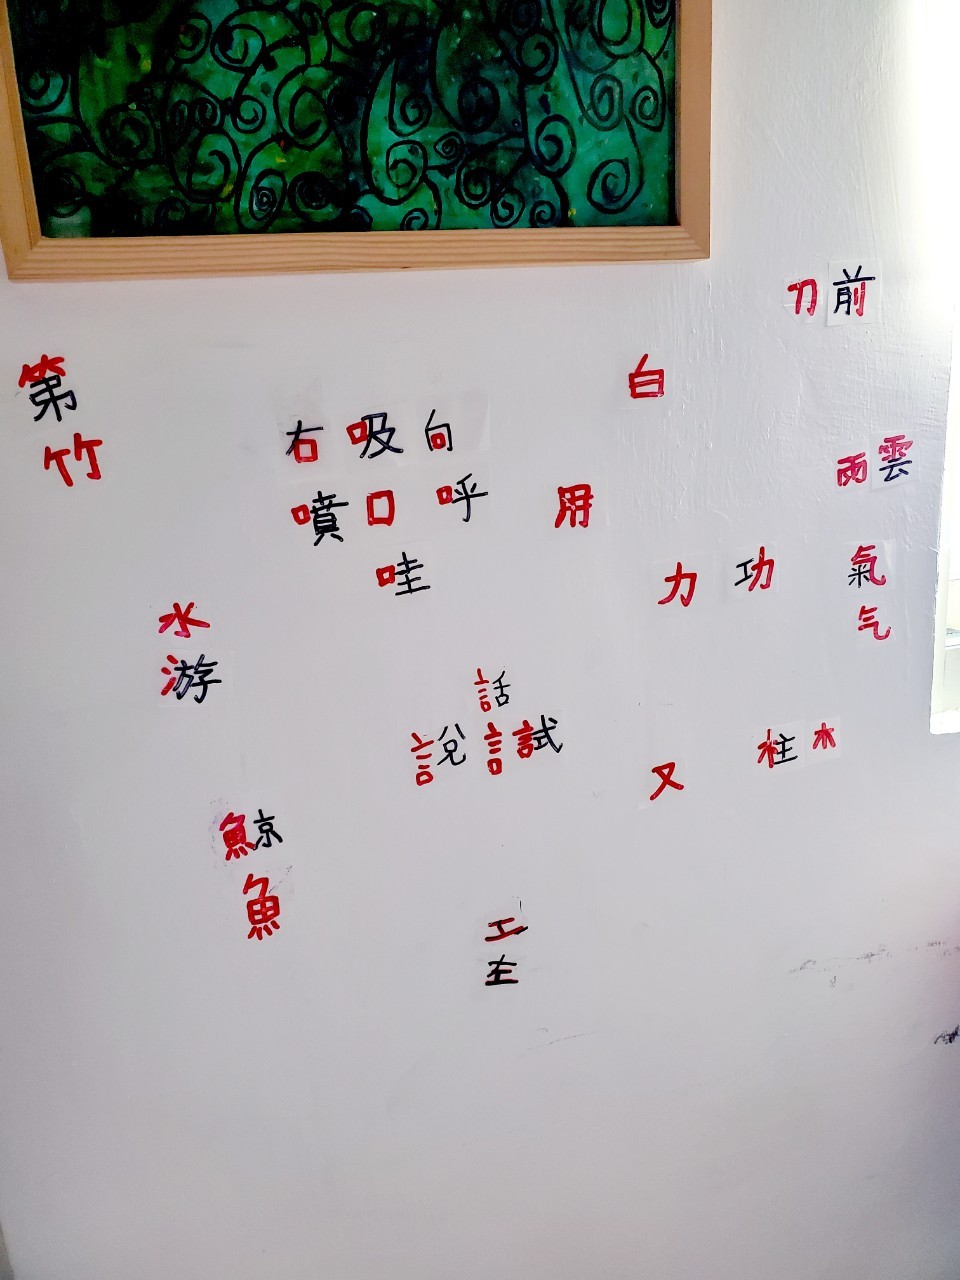 刀前
第
竹
白
右吸向
噴口呼
哇
用
雨雲
力功
氣
气
水
游
話
說言試
又
柱木
鯨
魚
工
左